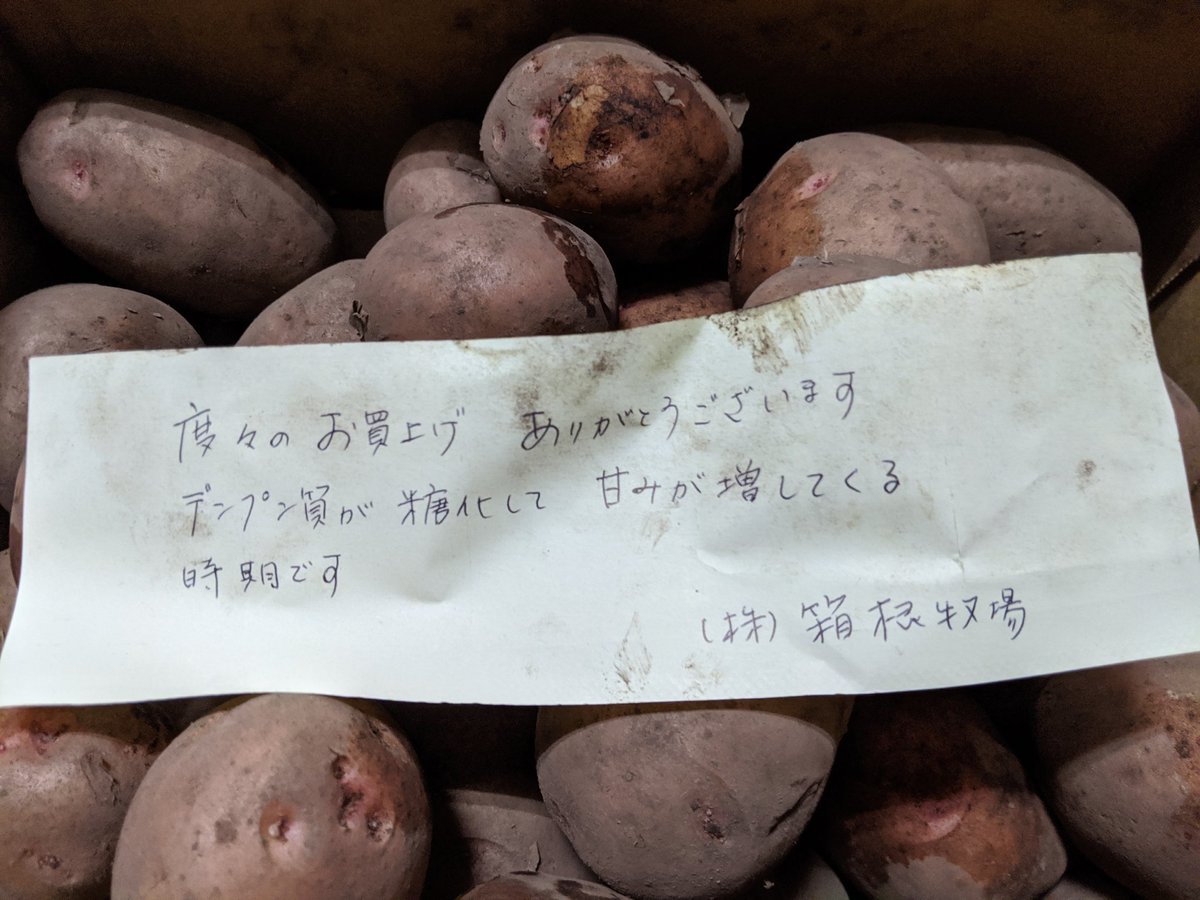 度々の お買上げ ありがとうございます
デンプン質が 糖化して 甘みが増してくる
時期です
(株) 箱根牧場